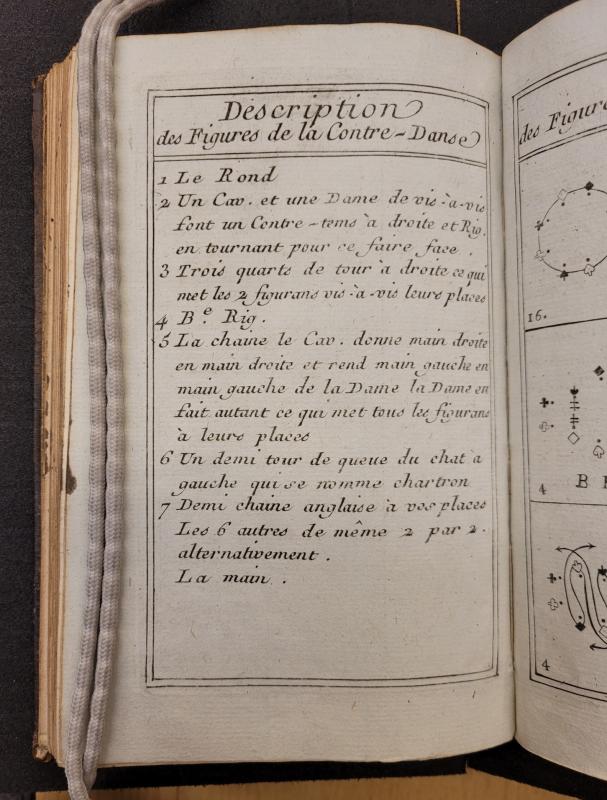 Description
des Figures de la Contre-Danse
1 Le Rond
2 Un Cav. et une Dame de vis-à-vis
font un Contre-tems à droite et Rig.
en tournant pour ce faire face.
3 Trois quarts de tour à droite ce qui
met les 2 figurans vis-à-vis leurs places
4 B.e Rig.
5 La chaine le Cav. donne main droite
en main droite et rend main gauche en
main gauche de la Dame la Dame en
fait autant ce qui met tous les figurans
à leurs places
6 Un demi tour de queue du chat a
gauche qui se nomme chartron
7 Demi chaine anglaise à vos places
Les 6 autres de même 2 par 2.
alternativement.
La main.
des Figure
16.
4 B
4